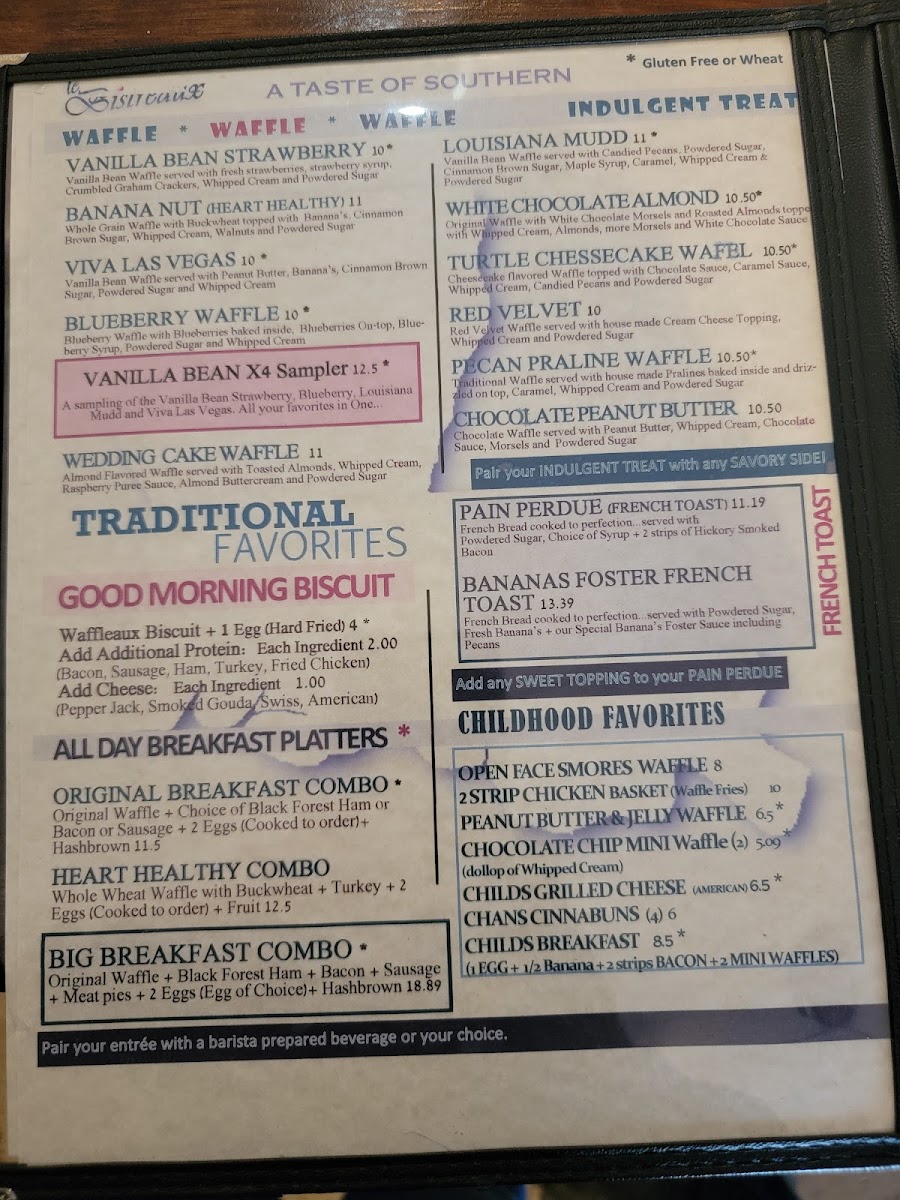 le Bistreaux
A TASTE OF SOUTHERN
* Gluten Free or Wheat
WAFFLE * WAFFLE * WAFFLE
VANILLA BEAN STRAWBERRY 10*
Vanilla Bean Waffle served with fresh strawberries, strawberry syrup,
Crumbled Graham Crackers, Whipped Cream and Powdered Sugar
BANANA NUT (HEART HEALTHY) 11
Whole Grain Waffle with Buckwheat topped with Banana's, Cinnamon
Brown Sugar, Whipped Cream, Walnuts and Powdered Sugar
VIVA LAS VEGAS 10 *
Vanilla Bean Waffle served with Peanut Butter, Banana's, Cinnamon Brown
Sugar, Powdered Sugar and Whipped Cream
BLUEBERRY WAFFLE 10 *
Blueberry Waffle with Blueberries baked inside, Blueberries On-top, Blue-
berry Syrup, Powdered Sugar and Whipped Cream
VANILLA BEAN X4 Sampler 12.5 *
A sampling of the Vanilla Bean Strawberry, Blueberry, Louisiana
Mudd and Viva Las Vegas. All your favorites in One...
WEDDING CAKE WAFFLE 11
Almond Flavored Waffle served with Toasted Almonds, Whipped Cream,
Raspberry Puree Sauce, Almond Buttercream and Powdered Sugar
TRADITIONAL
FAVORITES
GOOD MORNING BISCUIT
Waffleaux Biscuit + 1 Egg (Hard Fried) 4 *
Add Additional Protein: Each Ingredient 2.00
(Bacon, Sausage, Ham, Turkey, Fried Chicken)
Add Cheese: Each Ingredient 1.00
(Pepper Jack, Smoked Gouda, Swiss, American)
ALL DAY BREAKFAST PLATTERS *
ORIGINAL BREAKFAST COMBO *
Original Waffle + Choice of Black Forest Ham or
Bacon or Sausage + 2 Eggs (Cooked to order)+
Hashbrown 11.5
HEART HEALTHY COMBO
Whole Wheat Waffle with Buckwheat + Turkey + 2
Eggs (Cooked to order) + Fruit 12.5
BIG BREAKFAST COMBO *
Original Waffle + Black Forest Ham + Bacon + Sausage
+ Meat pies + 2 Eggs (Egg of Choice)+ Hashbrown 18.89
Pair your entrée with a barista prepared beverage or your choice.
INDULGENT TREAT
LOUISIANA MUDD 11 *
Vanilla Bean Waffle served with Candied Pecans, Powdered Sugar,
Cinnamon Brown Sugar, Maple Syrup, Caramel, Whipped Cream &
Powdered Sugar
WHITE CHOCOLATE ALMOND 10.50*
Original Waffle with White Chocolate Morsels and Roasted Almonds toppe
with Whipped Cream, Almonds, more Morsels and White Chocolate Sauce
TURTLE CHESSECAKE WAFEL 10.50*
Cheesecake flavored Waffle topped with Chocolate Sauce, Caramel Sauce,
Whipped Cream, Candied Pecans and Powdered Sugar
RED VELVET 10
Red Velvet Waffle served with house made Cream Cheese Topping,
Whipped Cream and Powdered Sugar
PECAN PRALINE WAFFLE 10.50*
Traditional Waffle served with house made Pralines baked inside and driz-
zled on top, Caramel, Whipped Cream and Powdered Sugar
CHOCOLATE PEANUT BUTTER 10.50
Chocolate Waffle served with Peanut Butter, Whipped Cream, Chocolate
Sauce, Morsels and Powdered Sugar
Pair your INDULGENT TREAT with any SAVORY SIDE!
PAIN PERDUE (FRENCH TOAST) 11.19
French Bread cooked to perfection...served with
Powdered Sugar, Choice of Syrup + 2 strips of Hickory Smoked
Bacon
BANANAS FOSTER FRENCH
TOAST 13.39
French Bread cooked to perfection...served with Powdered Sugar,
Fresh Banana's + our Special Banana's Foster Sauce including
Pecans
FRENCH TOAST
Add any SWEET TOPPING to your PAIN PERDUE
CHILDHOOD FAVORITES
OPEN FACE SMORES WAFFLE 8
2 STRIP CHICKEN BASKET (Waffle Fries) 10
PEANUT BUTTER & JELLY WAFFLE 6.5 *
CHOCOLATE CHIP MINI Waffle (2) 5.09 *
(dollop of Whipped Cream)
CHILDS GRILLED CHEESE (AMERICAN) 6.5 *
CHANS CINNABUNS (4) 6
CHILDS BREAKFAST 8.5 *
(1 EGG + 1/2 Banana + 2 strips BACON + 2 MINI WAFFLES)